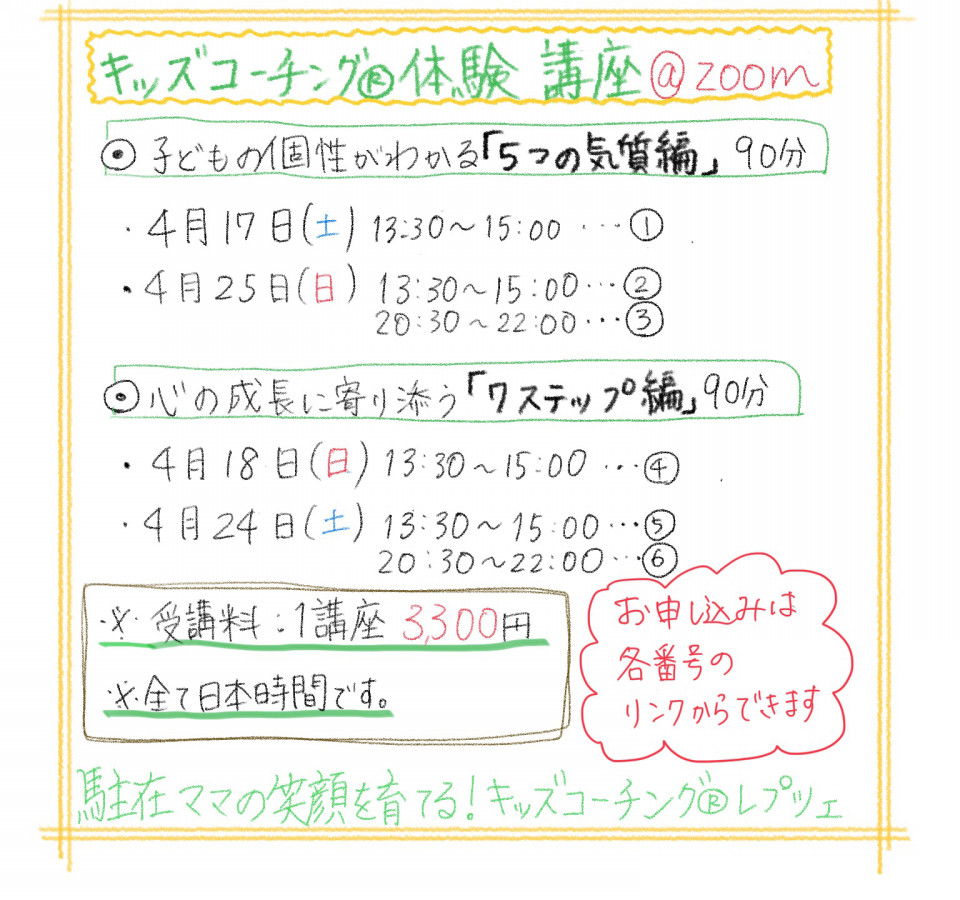 キッズコーチング®体験 講座@zoom
⦿子どもの個性がわかる「5つの気質編」90分
・4月17日(土) 13:30〜15:00 …①
・4月25日(日) 13:30〜15:00…②
20:30〜22:00…③
⦿心の成長に寄り添う「7ステップ編」90分
・4月18日(日) 13:30〜15:00 …④
・4月24日(土) 13:30〜15:00…⑤
20:30〜22:00…⑥
※受講料:1講座 3,300円
※全て日本時間です。
お申し込みは
各番号の
リンクからできます
駐在ママの笑顔を育てる!キッズコーチング®レプツェ